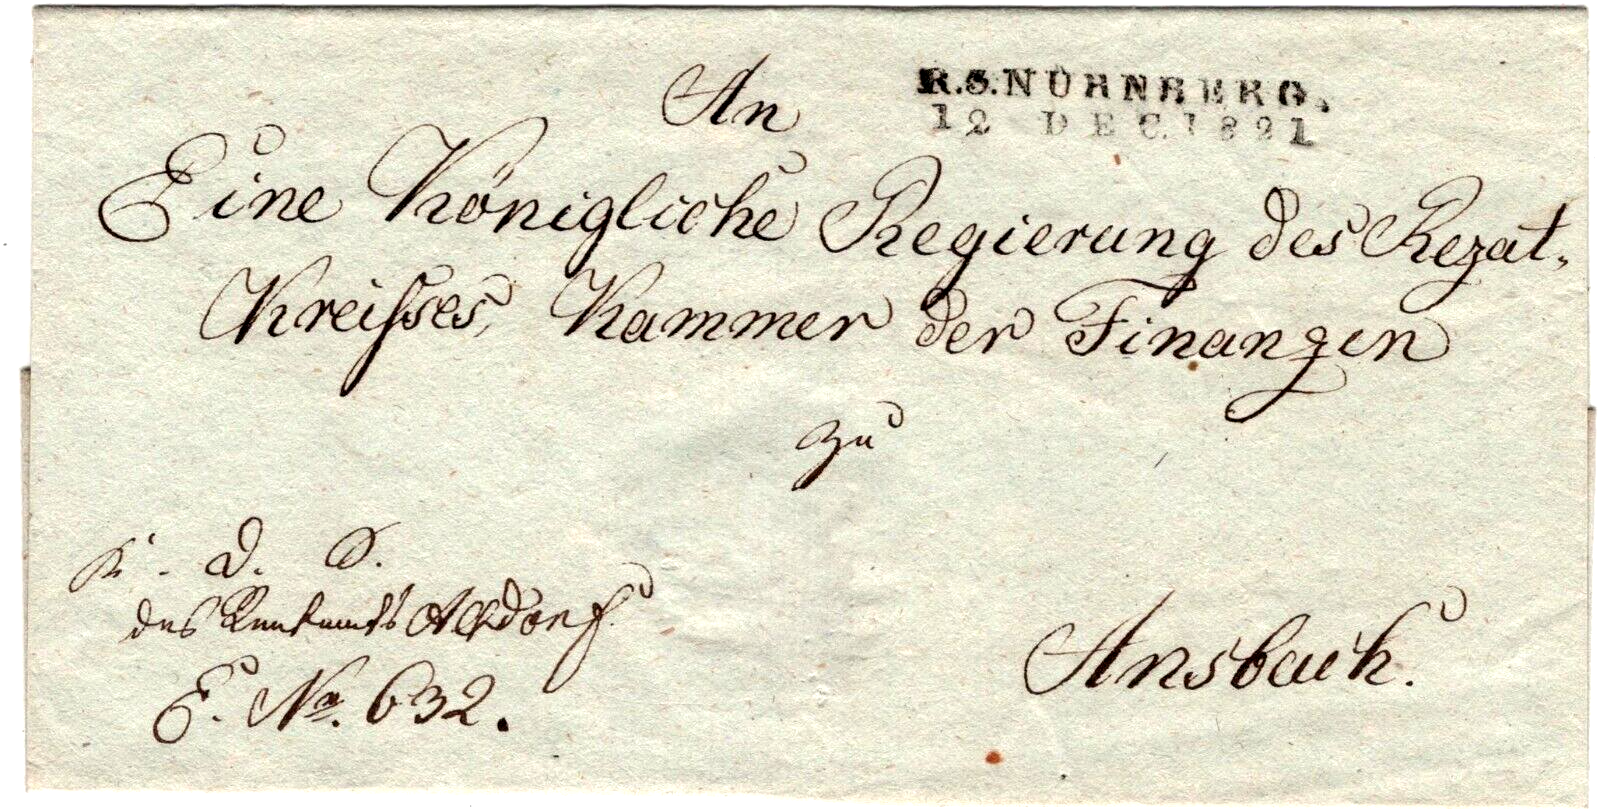 An
R.S.NÜRNBERG.
12 DEC.1821
Eine Königliche Regierung des Rezat-
Kreisses, Kammer der Finanzen
zu
K. D. S.
des Rentamts Altdorf.
Ansbach.
E. No. 632.